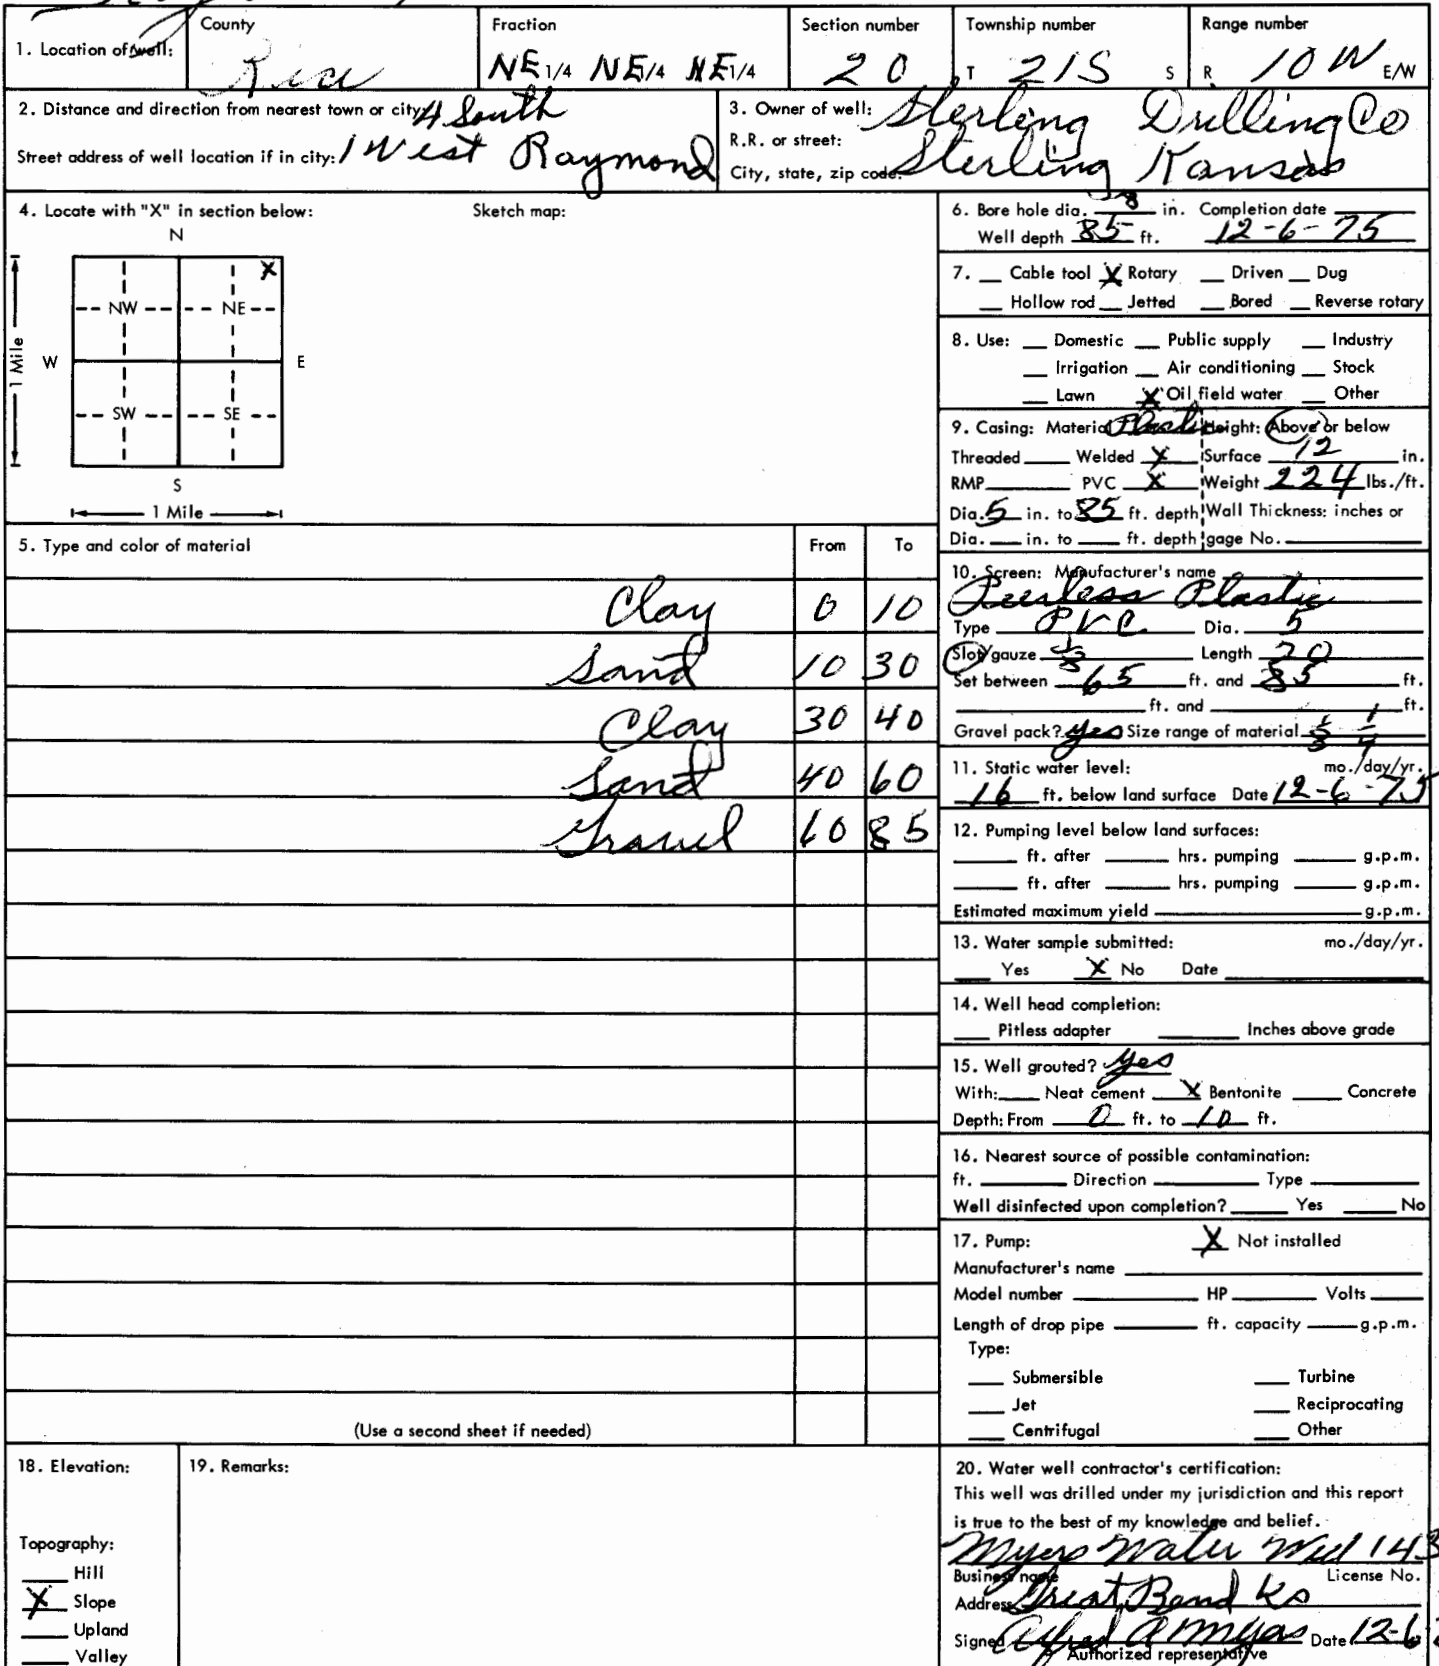 County Fraction Section number Township number Range number
1. Location of well: Rice NE 1/4 NE 1/4 NE 1/4 20 T 21S S R 10 W E/W
2. Distance and direction from nearest town or city: 4 South
Street address of well location if in city: 1 West Raymond
3. Owner of well: Sterling Drilling Co
R.R. or street:
City, state, zip code: Sterling Kansas
4. Locate with "X" in section below: Sketch map:
N
X
NW NE
W E
1 Mile
SW SE
S
1 Mile
5. Type and color of material From To
Clay 0 10
Sand 10 30
Clay 30 40
Sand 40 60
Gravel 60 85
(Use a second sheet if needed)
6. Bore hole dia. 8 in. Completion date
Well depth 85 ft. 12-6-75
7. __ Cable tool X Rotary __ Driven __ Dug
__ Hollow rod __ Jetted __ Bored __ Reverse rotary
8. Use: __ Domestic __ Public supply __ Industry
__ Irrigation __ Air conditioning __ Stock
__ Lawn X Oil field water __ Other
9. Casing: Material Plastic Height: Above or below
Threaded ____ Welded X Surface 12 in.
RMP ____ PVC X Weight 224 lbs./ft.
Dia. 5 in. to 85 ft. depth Wall Thickness: inches or
Dia. __ in. to __ ft. depth gage No. ____
10. Screen: Manufacturer's name
Peerless Plastic
Type PVC Dia. 5
Slot/gauze 1/8 Length 20
Set between 65 ft. and 85 ft.
____ ft. and ____ ft.
Gravel pack? yes Size range of material 1/8 1/4
11. Static water level: mo./day/yr.
16 ft. below land surface Date 12-6-75
12. Pumping level below land surfaces:
____ ft. after ____ hrs. pumping ____ g.p.m.
____ ft. after ____ hrs. pumping ____ g.p.m.
Estimated maximum yield ____ g.p.m.
13. Water sample submitted: mo./day/yr.
__ Yes X No Date ____
14. Well head completion:
__ Pitless adapter ____ Inches above grade
15. Well grouted? yes
With: __ Neat cement X Bentonite __ Concrete
Depth: From 0 ft. to 10 ft.
16. Nearest source of possible contamination:
ft. ____ Direction ____ Type ____
Well disinfected upon completion? ____ Yes ____ No
17. Pump: X Not installed
Manufacturer's name ____
Model number ____ HP ____ Volts ____
Length of drop pipe ____ ft. capacity ____ g.p.m.
Type:
__ Submersible __ Turbine
__ Jet __ Reciprocating
__ Centrifugal __ Other
18. Elevation:
Topography:
__ Hill
X Slope
__ Upland
__ Valley
19. Remarks:
20. Water well contractor's certification:
This well was drilled under my jurisdiction and this report
is true to the best of my knowledge and belief.
Myers Water Well 143
Business name License No.
Address Great Bend Ks
Signed Alfred A Myers Date 12-6
Authorized representative